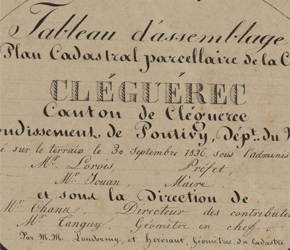 Tableau d'assemblage
Plan Cadastral parcellaire de la C
CLÉGUÉREC
Canton de Cléguerec
ndissement de Pontivy, dépt. du
sur le terrain le 30 Septembre 1836, sous l'adminis
Mr. Lorois, Préfet
Mr. Jouan, Maire
et sous la direction de
Mr. Directeur des contributi
Mr. Tanguy, Géomètre en chef
Par M.M. et Herviant, Géomètres du Cadastre